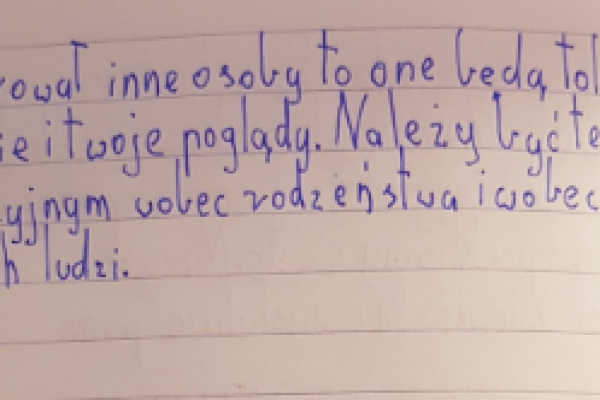 rował inne osoby to one beda tol
ie i twoje poglądy. Należy być te
yjnym wobec rodzeństwa i wobec
h ludzi.